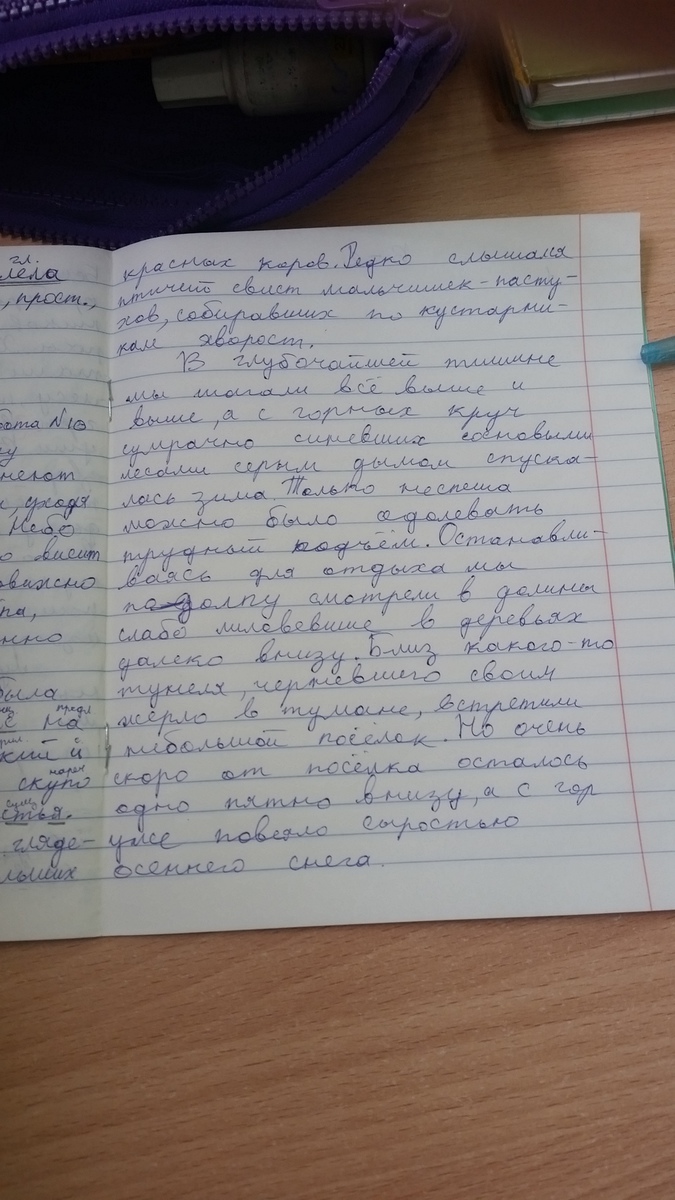 гл.
лела
, прост.,
бота №10
ку
неют
и, уходя
Небо
о висит
овижно
ба,
нно
была
предл
е на
кий и
нареч
скупо
сущ
стья.
гляде-
льших
красных коров. Редко слышался
птичей свист мальчишек-пасту-
хов, собиравших по кустарни-
кам хворост.
В глубочайшей тишине
мы шагали всё выше и
выше, а с горных круч
сумрачно синевших сосновыми
лесами серым дымом спуска-
лась зима. Только неспеша
можно было одолевать
трудный подъём. Останавли-
ваясь для отдыха мы
подолгу смотрели в долины
слабо лиловевшие в деревьях
далеко внизу. Близ какого-то
тунеля, черневшего своим
жерло в тумане, встретили
небольшой посёлок Но очень
скоро от посёлка осталось
одно пятно внизу, а с гор
уже повеяло сыростью
осеннего снега.